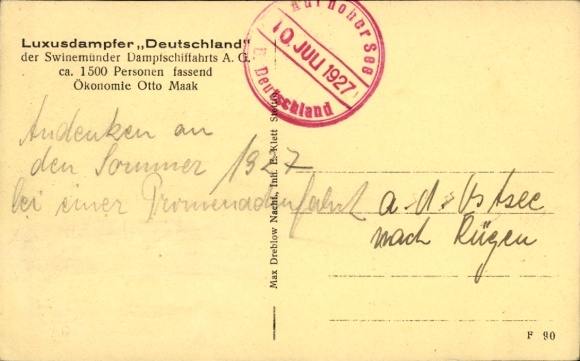 Luxusdampfer „Deutschland"
der Swinemünder Dampfschiffahrts A. G.
ca. 1500 Personen fassend
Ökonomie Otto Maak
Auf hoher See
10. JULI 1927
D. Deutschland
Andenken an
den Sommer 1927
bei einer Promenadenfahrt a. d. Ostsee
nach Rügen
Max Dreblow Nachf., Inh. E. Klett Stettin
F 90